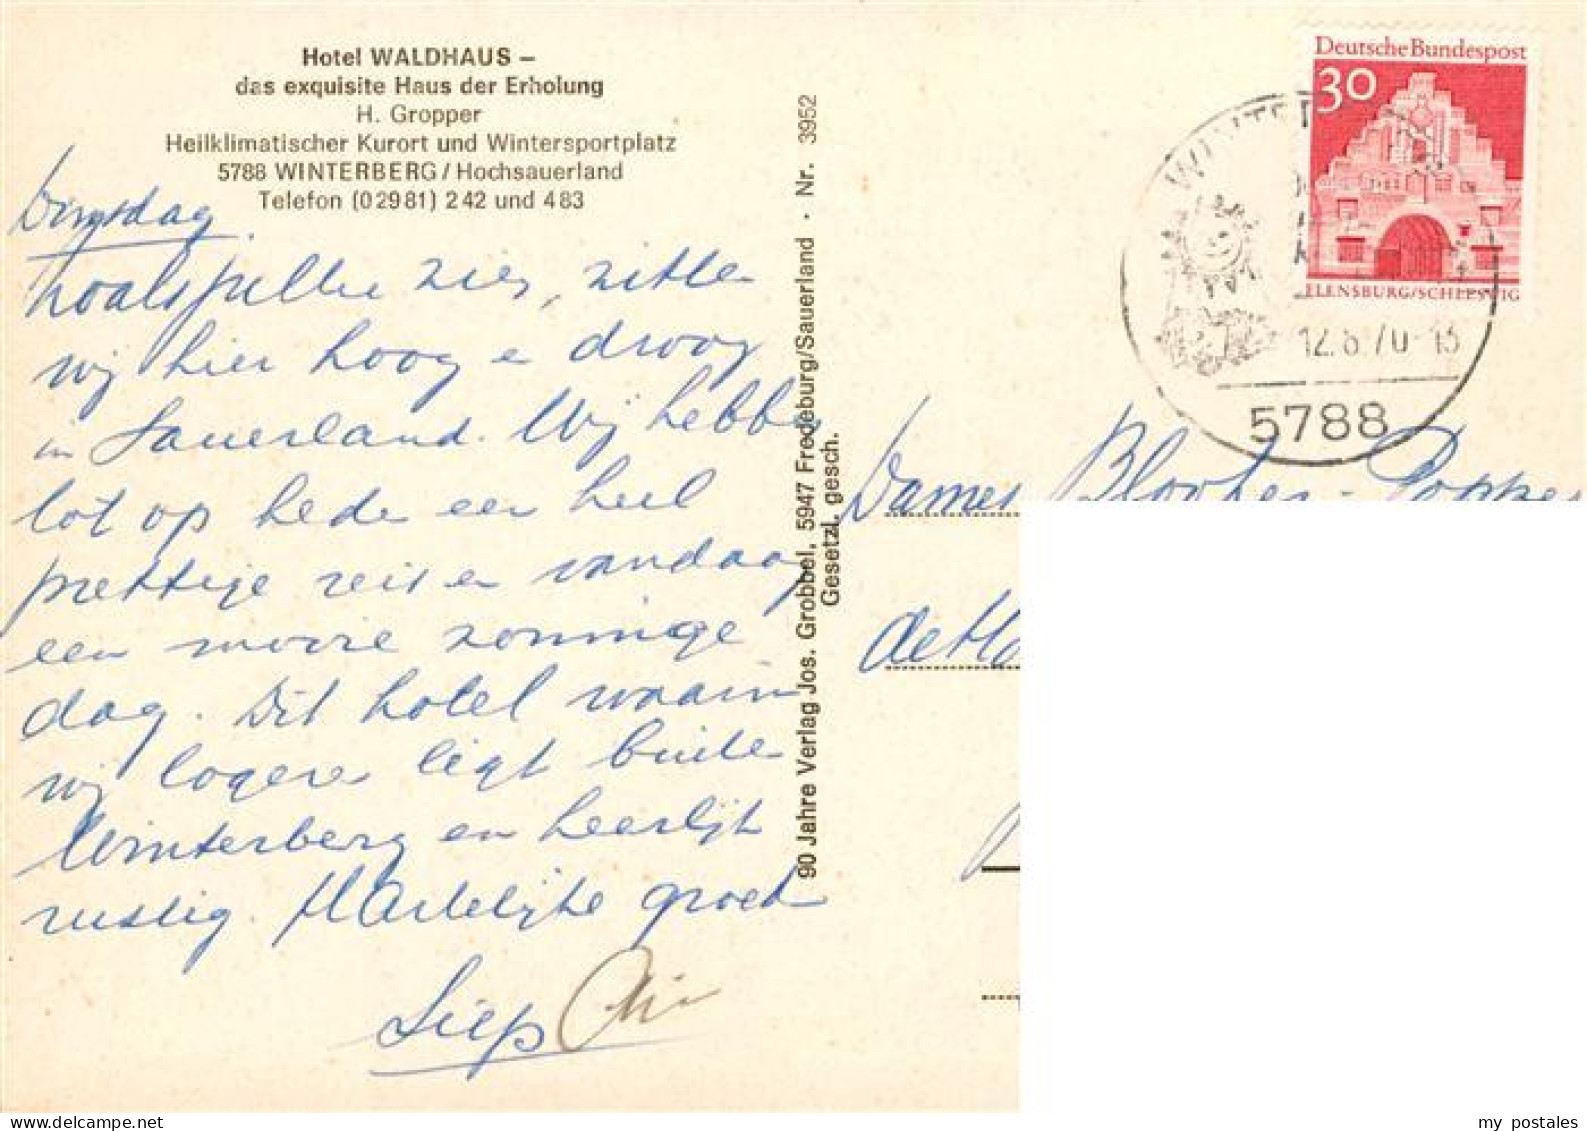 Hotel WALDHAUS –
das exquisite Haus der Erholung
H. Gropper
Heilklimatischer Kurort und Wintersportplatz
5788 WINTERBERG / Hochsauerland
Telefon (0 29 81) 2 42 und 4 83
Dinsdag
zoals jullie zien, zitten
wij hier hoog en droog
in Sauerland. Wij hebben
tot op heden een heel
prettige reis en vandaag
een mooie zonnige
dag. Dit hotel waarin
wij logeren ligt buiten
Winterberg en heerlijk
rustig. Hartelijke groet
90 Jahre Verlag Jos. Grobbel, 5947 Fredeburg/Sauerland · Nr. 3952
Gesetzl. gesch.
Deutsche Bundespost
30
FLENSBURG/SCHLESWIG
5788
Dames
my postales